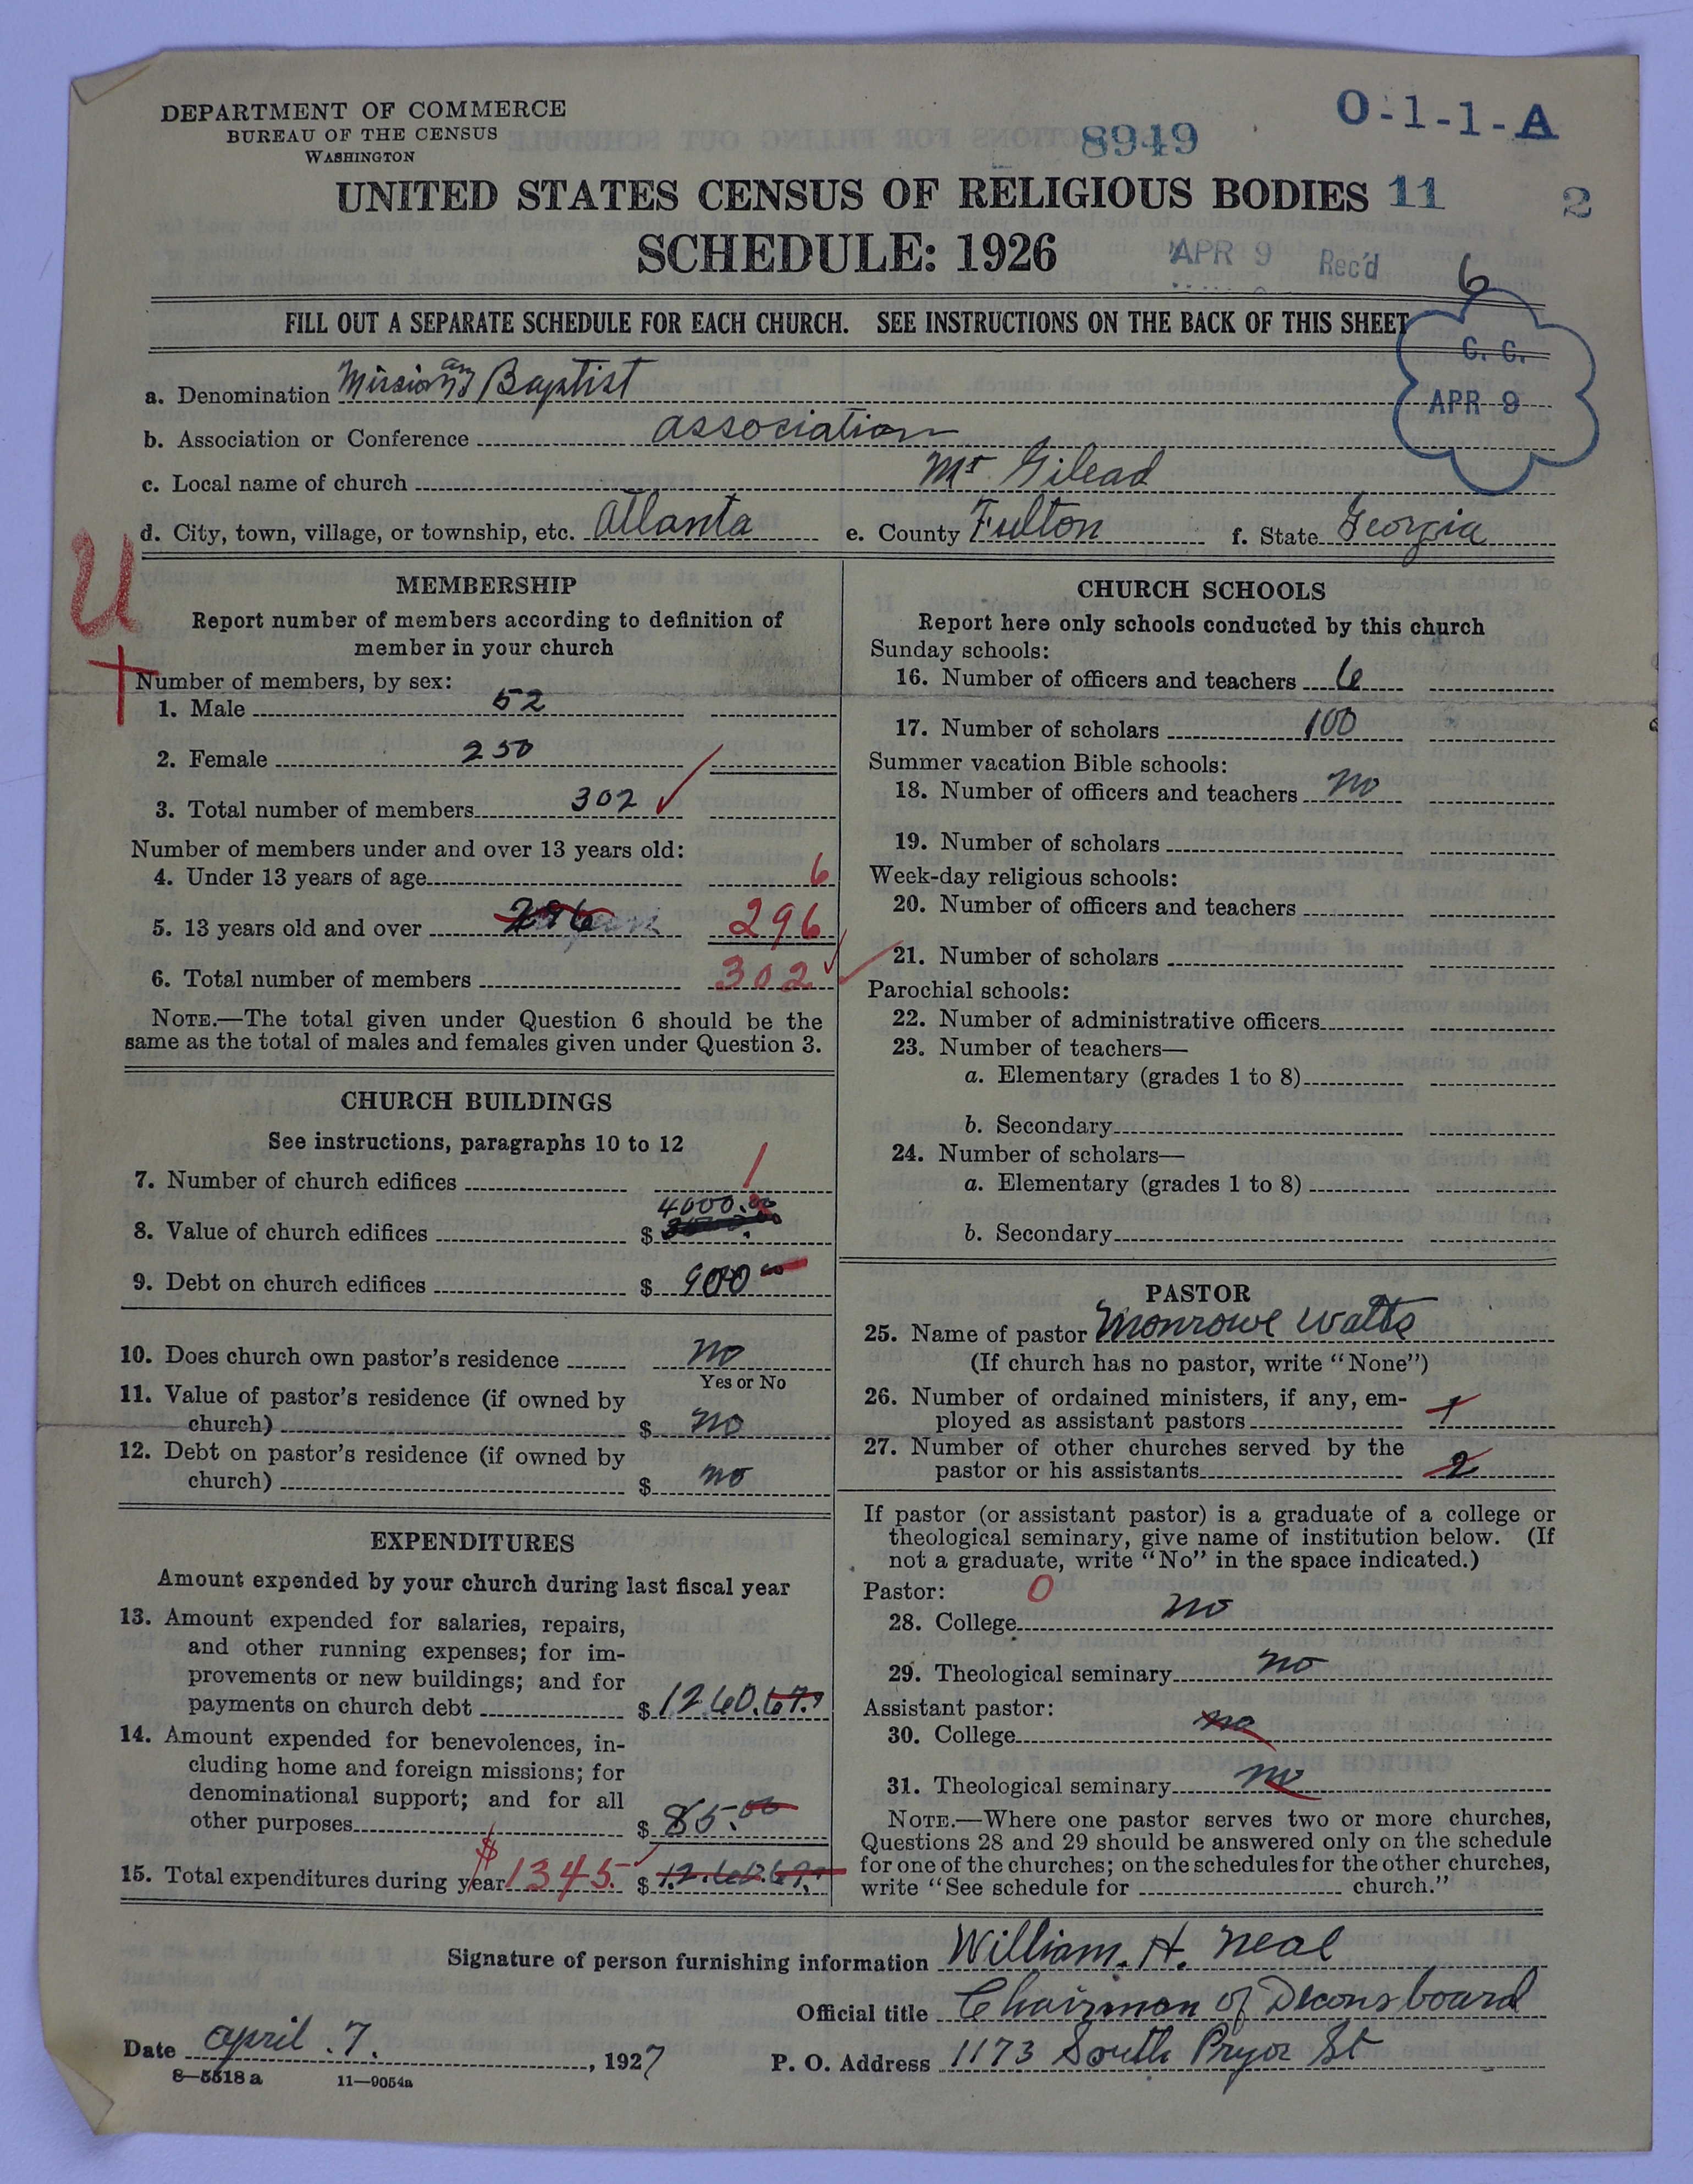 DEPARTMENT OF COMMERCE
BUREAU OF THE CENSUS
WASHINGTON
8949
O-1-1-A
UNITED STATES CENSUS OF RELIGIOUS BODIES 11 2
SCHEDULE: 1926
APR 9 Rec'd
6
FILL OUT A SEPARATE SCHEDULE FOR EACH CHURCH. SEE INSTRUCTIONS ON THE BACK OF THIS SHEET
C. C.
APR 9
a. Denomination Missionary Baptist
b. Association or Conference association
c. Local name of church Mt Gilead
d. City, town, village, or township, etc. Atlanta e. County Fulton f. State Georgia
U
MEMBERSHIP
Report number of members according to definition of
member in your church
Number of members, by sex:
1. Male 52
2. Female 250
3. Total number of members 302
Number of members under and over 13 years old:
4. Under 13 years of age 6
5. 13 years old and over 296 296
6. Total number of members 302
NOTE.—The total given under Question 6 should be the
same as the total of males and females given under Question 3.
CHURCH BUILDINGS
See instructions, paragraphs 10 to 12
7. Number of church edifices 1
4000.00
8. Value of church edifices $
9. Debt on church edifices $ 900 00
10. Does church own pastor's residence no
Yes or No
11. Value of pastor's residence (if owned by
church) $ no
12. Debt on pastor's residence (if owned by
church) $ no
EXPENDITURES
Amount expended by your church during last fiscal year
13. Amount expended for salaries, repairs,
and other running expenses; for im-
provements or new buildings; and for
payments on church debt $ 1260.67
14. Amount expended for benevolences, in-
cluding home and foreign missions; for
denominational support; and for all
other purposes $ 85.00
15. Total expenditures during year $1345 $ 1260.67
CHURCH SCHOOLS
Report here only schools conducted by this church
Sunday schools:
16. Number of officers and teachers 6
17. Number of scholars 100
Summer vacation Bible schools:
18. Number of officers and teachers no
19. Number of scholars
Week-day religious schools:
20. Number of officers and teachers
21. Number of scholars
Parochial schools:
22. Number of administrative officers
23. Number of teachers—
a. Elementary (grades 1 to 8)
b. Secondary
24. Number of scholars—
a. Elementary (grades 1 to 8)
b. Secondary
PASTOR
25. Name of pastor Monrowe Watts
(If church has no pastor, write "None")
26. Number of ordained ministers, if any, em-
ployed as assistant pastors 1
27. Number of other churches served by the
pastor or his assistants 2
If pastor (or assistant pastor) is a graduate of a college or
theological seminary, give name of institution below. (If
not a graduate, write "No" in the space indicated.)
Pastor: 0
28. College no
29. Theological seminary no
Assistant pastor:
30. College no
31. Theological seminary no
NOTE.—Where one pastor serves two or more churches,
Questions 28 and 29 should be answered only on the schedule
for one of the churches; on the schedules for the other churches,
write "See schedule for church."
Signature of person furnishing information William. H. Neal
Official title Chairman of Decons board
Date April .7. , 1927 P. O. Address 1173 South Pryor St
8—5518 a 11—9054a